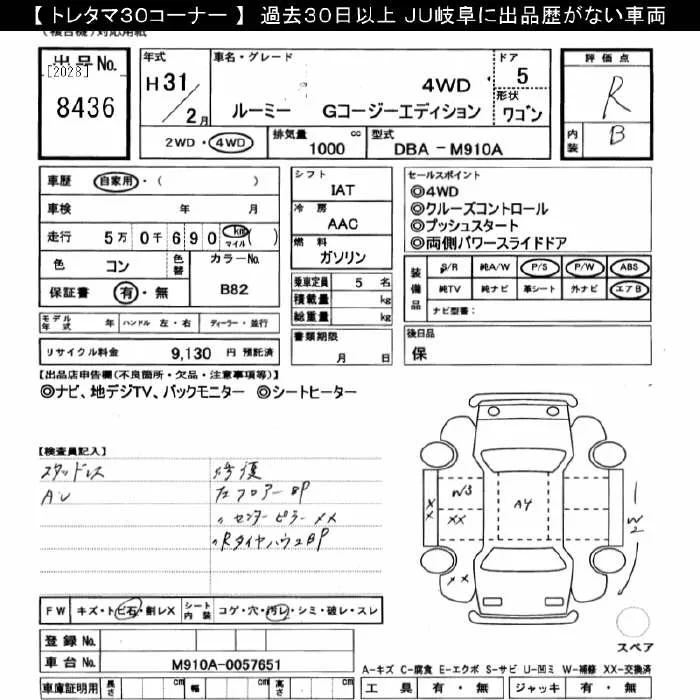 【トレタマ30コーナー】 過去30日以上 JU岐阜に出品歴がない車両
(複合機)対応用紙
出品No. [2028] 8436
年式 H 31/2月
車名・グレード 4WD
ルーミー Gコージーエディション
ドア 5
形状 ワゴン
2WD・4WD 排気量 1000 cc 型式 DBA-M910A
評価点 R
内装 B
車歴 自家用・( )
車検 年 月
走行 5万 0千 6 9 0 km マイル ( )
色 コン 色替 カラーNo. B82
保証書 有・無
モデル年式 年 ハンドル 左・右 ディーラー・並行
リサイクル料金 9,130 円 預託済
シフト IAT
冷房 AAC
燃料 ガソリン
乗車定員 5 名
積載量 kg
総重量 kg
書類期限 月 日
セールスポイント
◎4WD
◎クルーズコントロール
◎プッシュスタート
◎両側パワースライドドア
装備品 S/R 純A/W P/S P/W ABS
純TV 純ナビ 革シート 外ナビ エアB
ナビ型番:
後日品
保
【出品店申告欄(不良箇所・欠品・注意事項等)】
◎ナビ、地デジTV、バックモニター ◎シートヒーター
【検査員記入】
スタッドレス
AU
修復
左フロアーBP
〃センターピラーXX
〃RタイヤハウスBP
X X
W3
XX
A4
XX
W2
スペア
FW キズ・トビ石・割レX シート内装 コゲ・穴・汚レ・シミ・破レ・スレ
登録No.
車台No. M910A-0057651
車庫証明用 長さ cm 幅 cm 高さ cm
A-キズ C-腐食 E-エクボ S-サビ U-凹ミ W-補修 XX-交換済
工具 有・無 ジャッキ 有・無